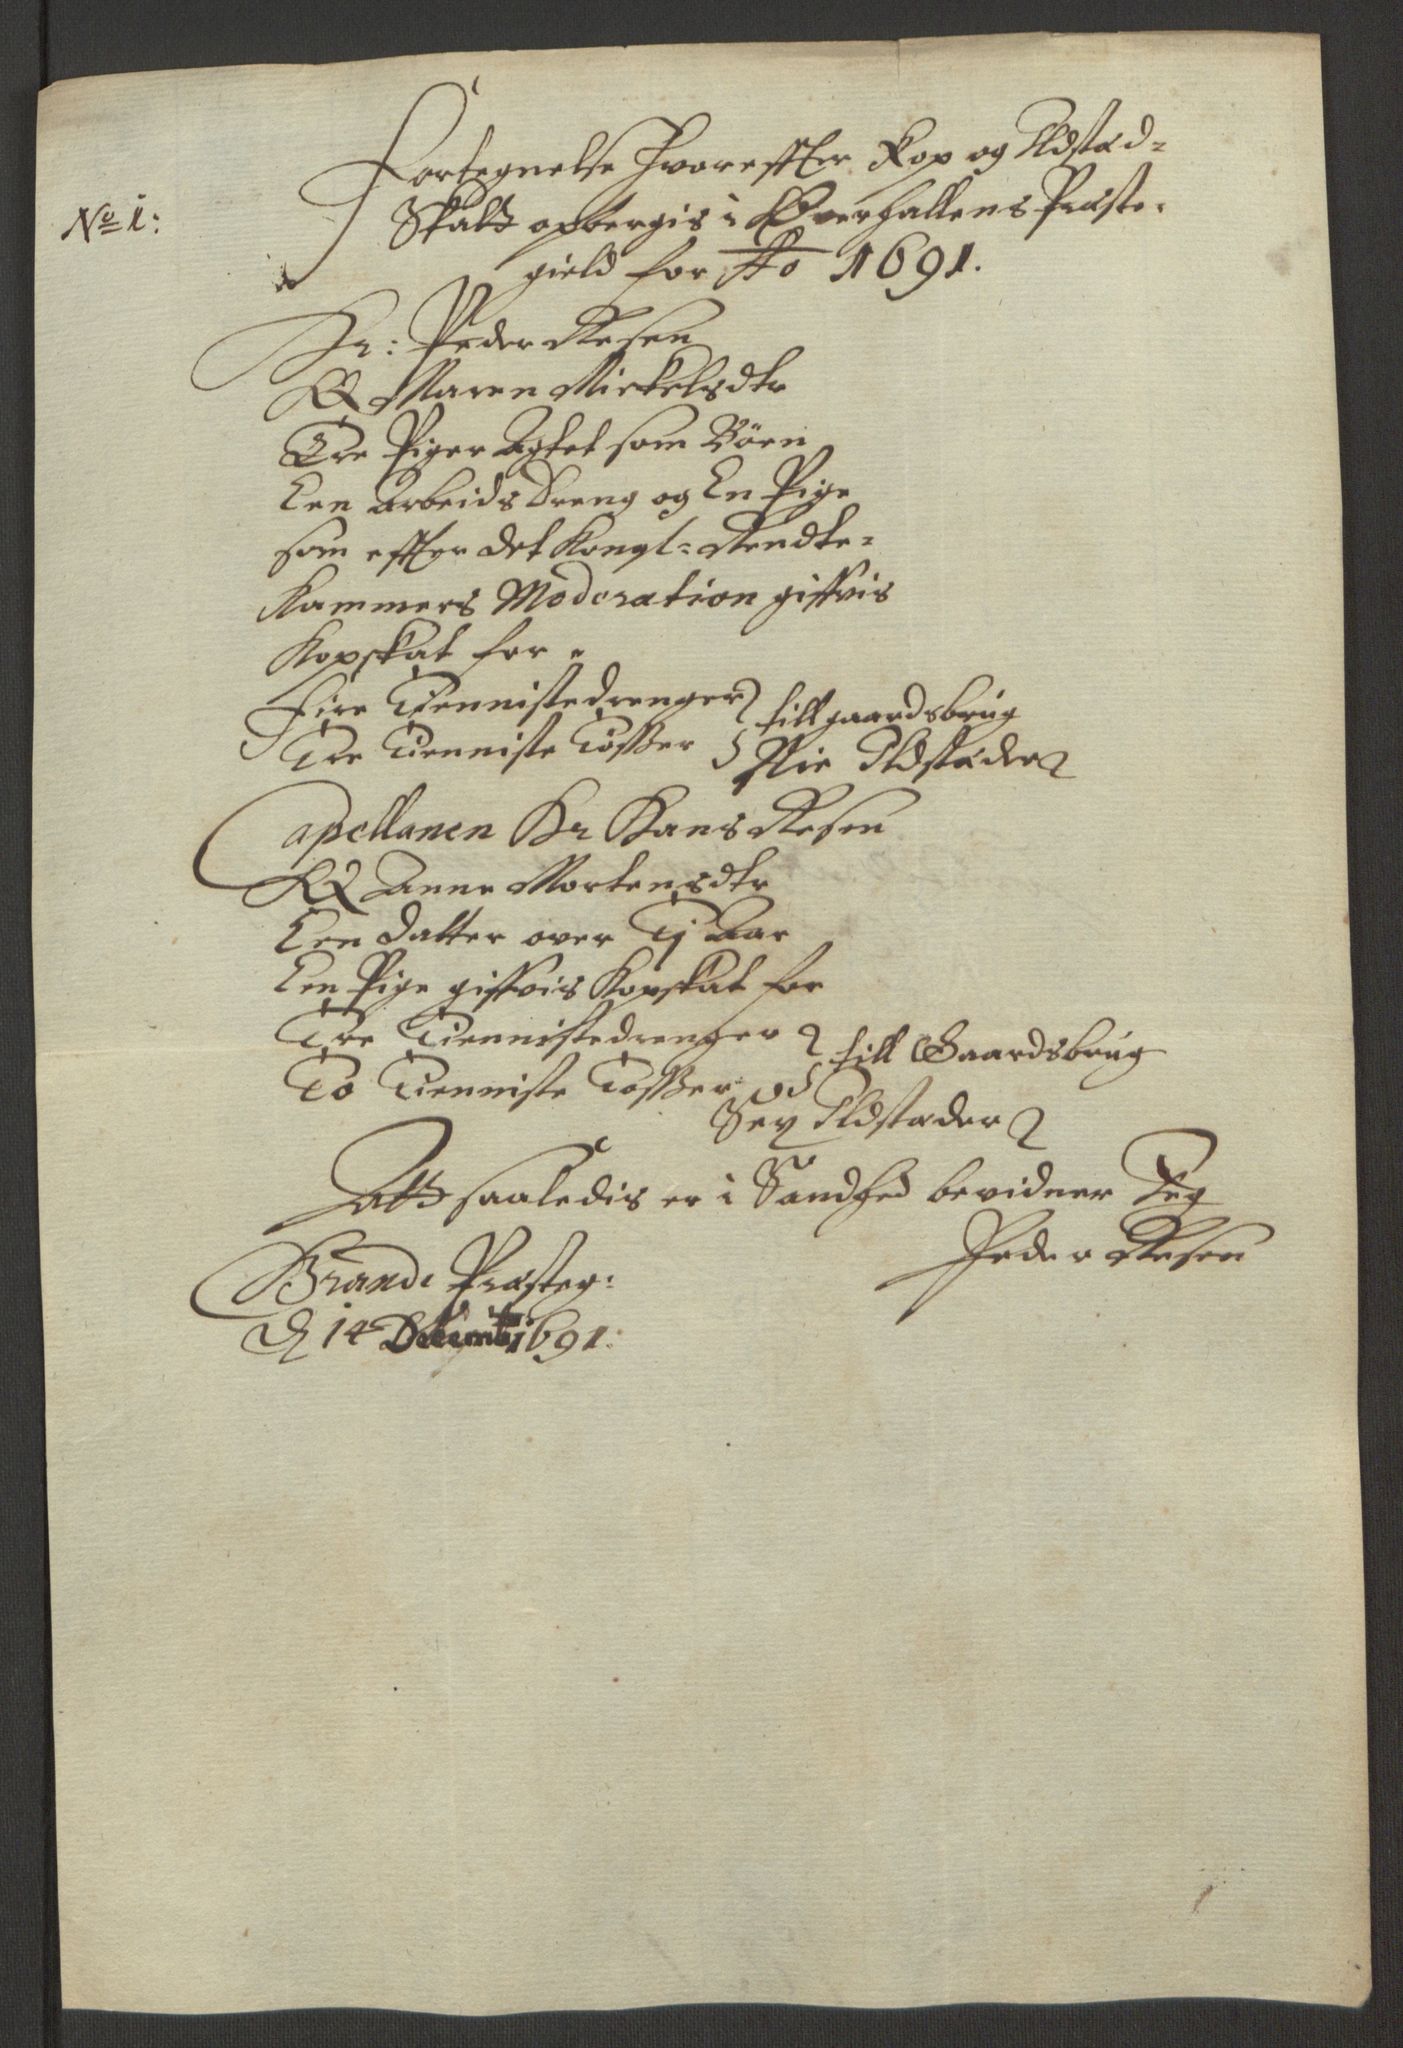 No 1:
Fortegnelse Hvorefter Kop og Ildstæd-
Skatt opbergis i Overhallens Præste-
gield for Ao 1691.
Hr: Peder Resen
Maren Mickelsdtr
Tre Piger Agtet som Börn
Een arbeids dreng og En Pige
som effter det Kongl: Rendte-
Kammers Moderation giffvis
Kopskat for
Fire Tiennistedrenger
Tre Tienniste Tösser
till gaardsbrug
Nie Ildstæder
Capellanen Hr Hans Resen
Anne Mortensdtr
Een datter over Tj Aar
Een Pige giffvis Kopskat for
Tre Tiennistedrenger
To Tienniste Tösser
till Gaardsbrug
Sex Ildstæder
Att saaledis er i Sandhed bevidner Jeg
Peder Resen
Brande Præsteg:
D 14 Decemb: 1691.